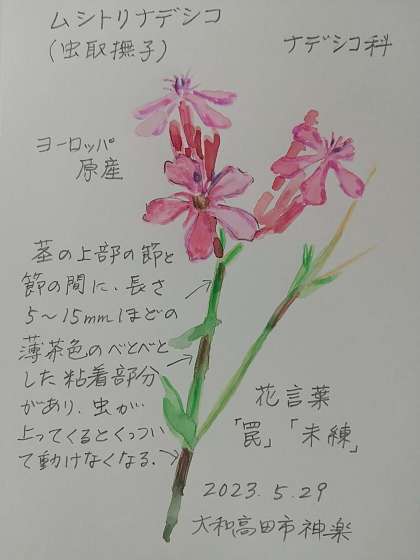 ムシトリナデシコ
(虫取撫子)
ナデシコ科
ヨーロッパ
原産
茎の上部の節と
節の間に、長さ
5〜15mmほどの
薄茶色のべとべと
した粘着部分
があり、虫が
上ってくるとくっつい
て動けなくなる.
花言葉
「罠」「未練」
2023.5.29
大和高田市神楽